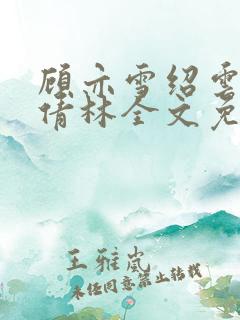 顾亦雪绍云
倩林全文免
王雅岚
未经同意禁止转载